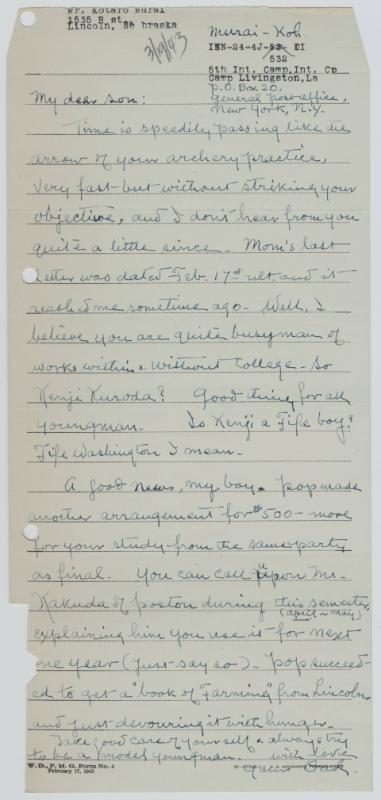 Mr. Kotaro Murai
1535 B st.
Lincoln, Ne braska
3/19/43
Murai - Koh.
ISN-24-4J-53- CI
532
5th Int. Camp, Int. Cp
Camp Livingston, La
P.O. Box 20.
General post office,
New York, N.Y.
My dear son:
Time is speedily passing like the
arrow of your archery practice,
very fast but without striking your
objective, and I don't hear from you
quite a little since. Mom's last
letter was dated Feb. 17th ult. and it
reached me sometime ago. Well, I
believe you are quite busy man of
works within & without College. So
Kenji Kuroda? Good thing for all
youngman. Is Kenji a Fife boy?
Fife Washington I mean.
A good news, my boy. Pop made
another arrangement for $500- more
for your study from the same party
as final. You can call upon Mr.
Kakuda of poston during this semester,
(april ~ may)
explaining him you use it for next
one year (just say so). Pop succeed-
ed to get a book of "Farming" from Lincoln
and just devouring it with hunger.
Take good care of yourself & always try
to be a model youngman. with love
W. D., P. M. G. Form No. 4
February 17, 1942